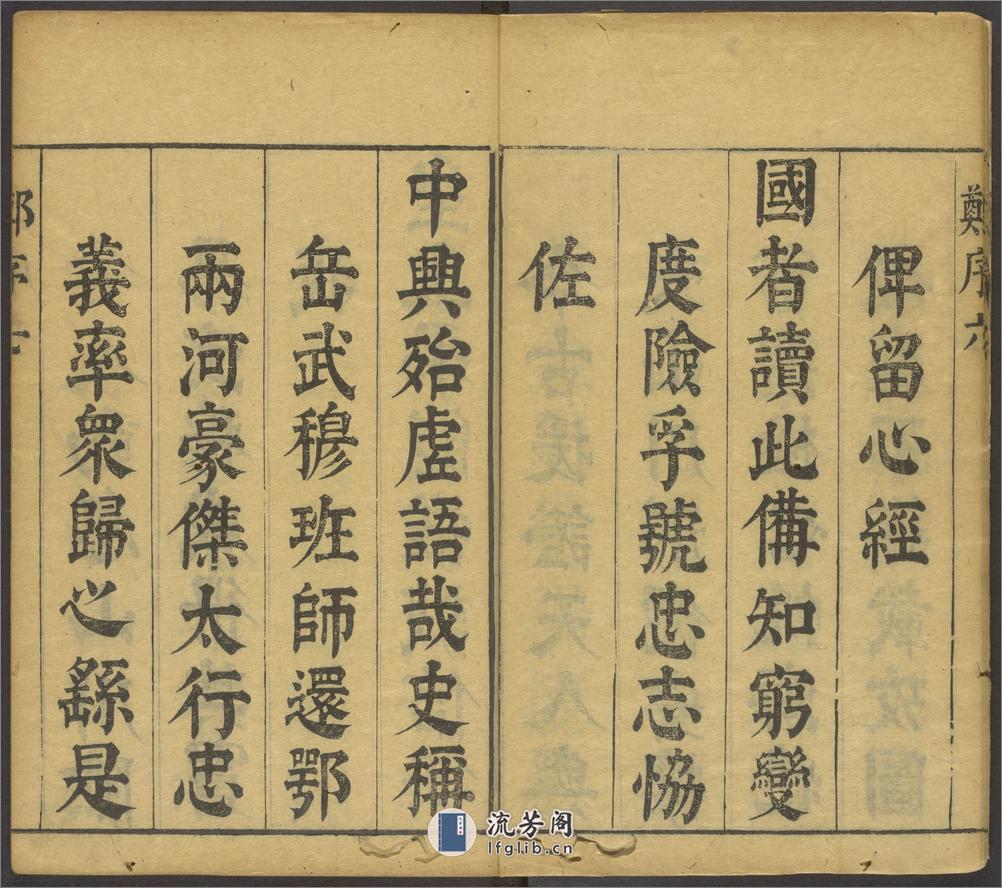 鄭序六
俾留心經
國者讀此備知窮變
度險孚號忠志恊
佐
中興殆虛語哉史稱
岳武穆班師還鄂
兩河豪傑太行忠
義率衆歸之繇是
流芳阁
lfglib.cn